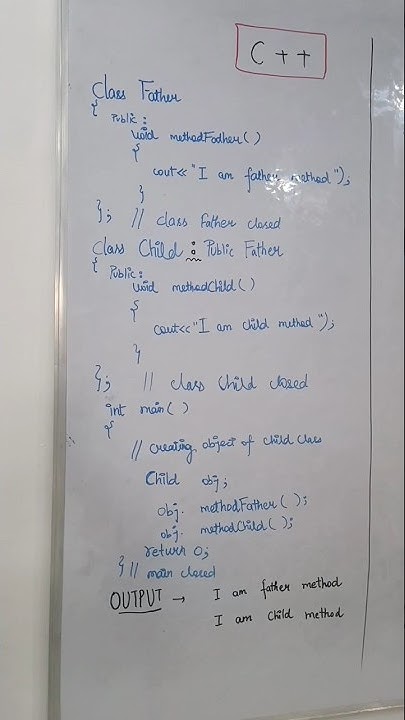 C ++
Class Father
{
Public :
void methodFather ( )
{
cout<< "I am father method ");
}
} ; // class Father closed
Class Child : Public Father
{
Public:
void methodChild ( )
{
cout<< "I am child method ");
}
} ; // class Child closed
int main( )
{
// creating object of child class
Child obj ;
obj. methodFather ( ) ;
obj. methodChild ( ) ;
return 0 ;
} // main closed
OUTPUT → I am father method
I am Child method